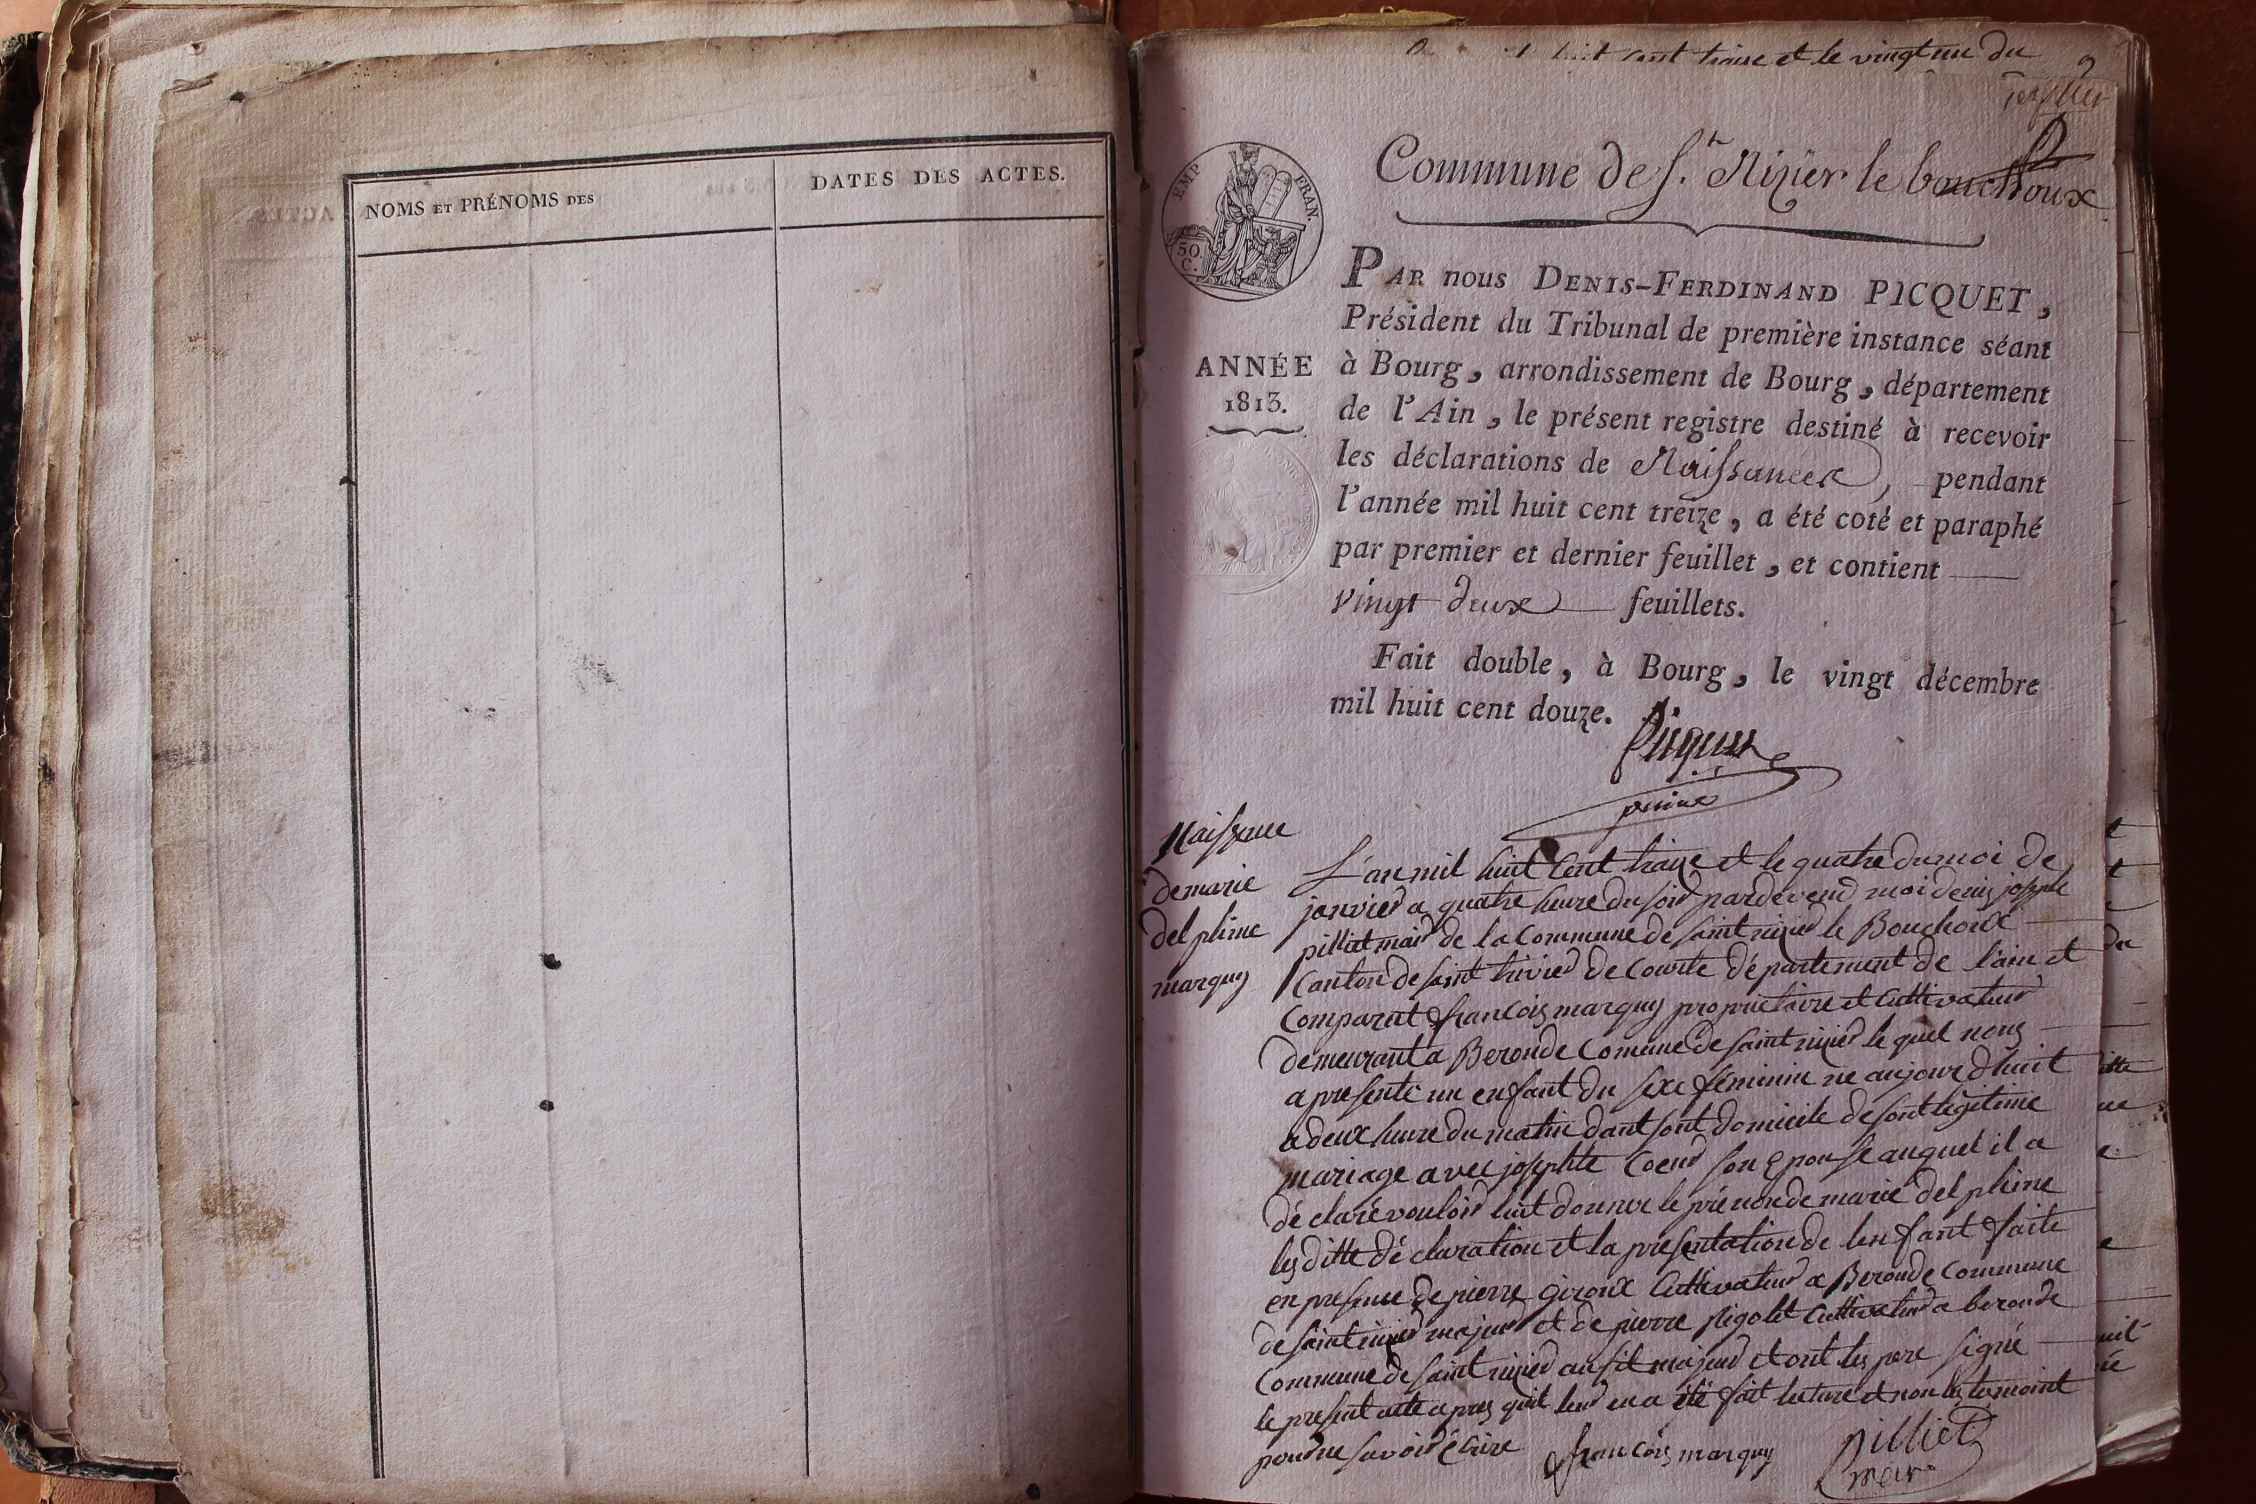 NOMS ET PRÉNOMS DES
DATES DES ACTES.
cent traise et le vingt un du
2
Commune de St. Nizier le bouchoux
EMP. FRAN.
50 C.
PAR nous DENIS-FERDINAND PICQUET,
Président du Tribunal de première instance séant
à Bourg, arrondissement de Bourg, département
de l'Ain, le présent registre destiné à recevoir
les déclarations de Naissances, pendant
l'année mil huit cent treize, a été coté et paraphé
par premier et dernier feuillet, et contient
vingt deux feuillets.
Fait double, à Bourg, le vingt décembre
mil huit cent douze.
ANNÉE
1813.
Picquet
Naissance
de marie
delphine
marquy
L'an mil huit Cent traise et le quatre du moi de
janvier a quatre heure du soir pardevend moi denis joseph
pilliet mair de la Commune de saint nizier le Bouchoux
Canton de saint trivier de Courte département de l'ain et
Comparut françois marquy proprietaire et Cultivateur
demeurant a Beronde Comune de saint nizier le quel nous
a presenté un enfant du sexe féminin ne aujourd'huit
a deux heure du matin dant sont domicile de sont légitime
mariage avec josephte Coeur son epouse auquel il a
déclaré vouloir luit donner le prénon de marie delphine
les ditte déclaration et la presentation de lenfant faite
en presence de pierre giroux Cultivateur a Beronde Commune
de saint nizier majeur et de pierre pigolet Cultivateur a beronde
Commune de saint nizier ausit majeur et ont les pere signé
le present acte apres quit leur en a été fait lecture et non les temoint
pour ne savoir écrire
françois marquy
pilliet
mair